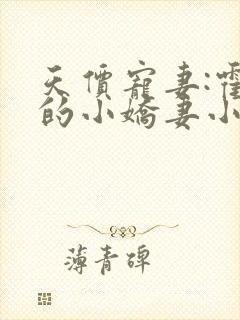 天價寵妻:霍
的小嬌妻小
薄青碑